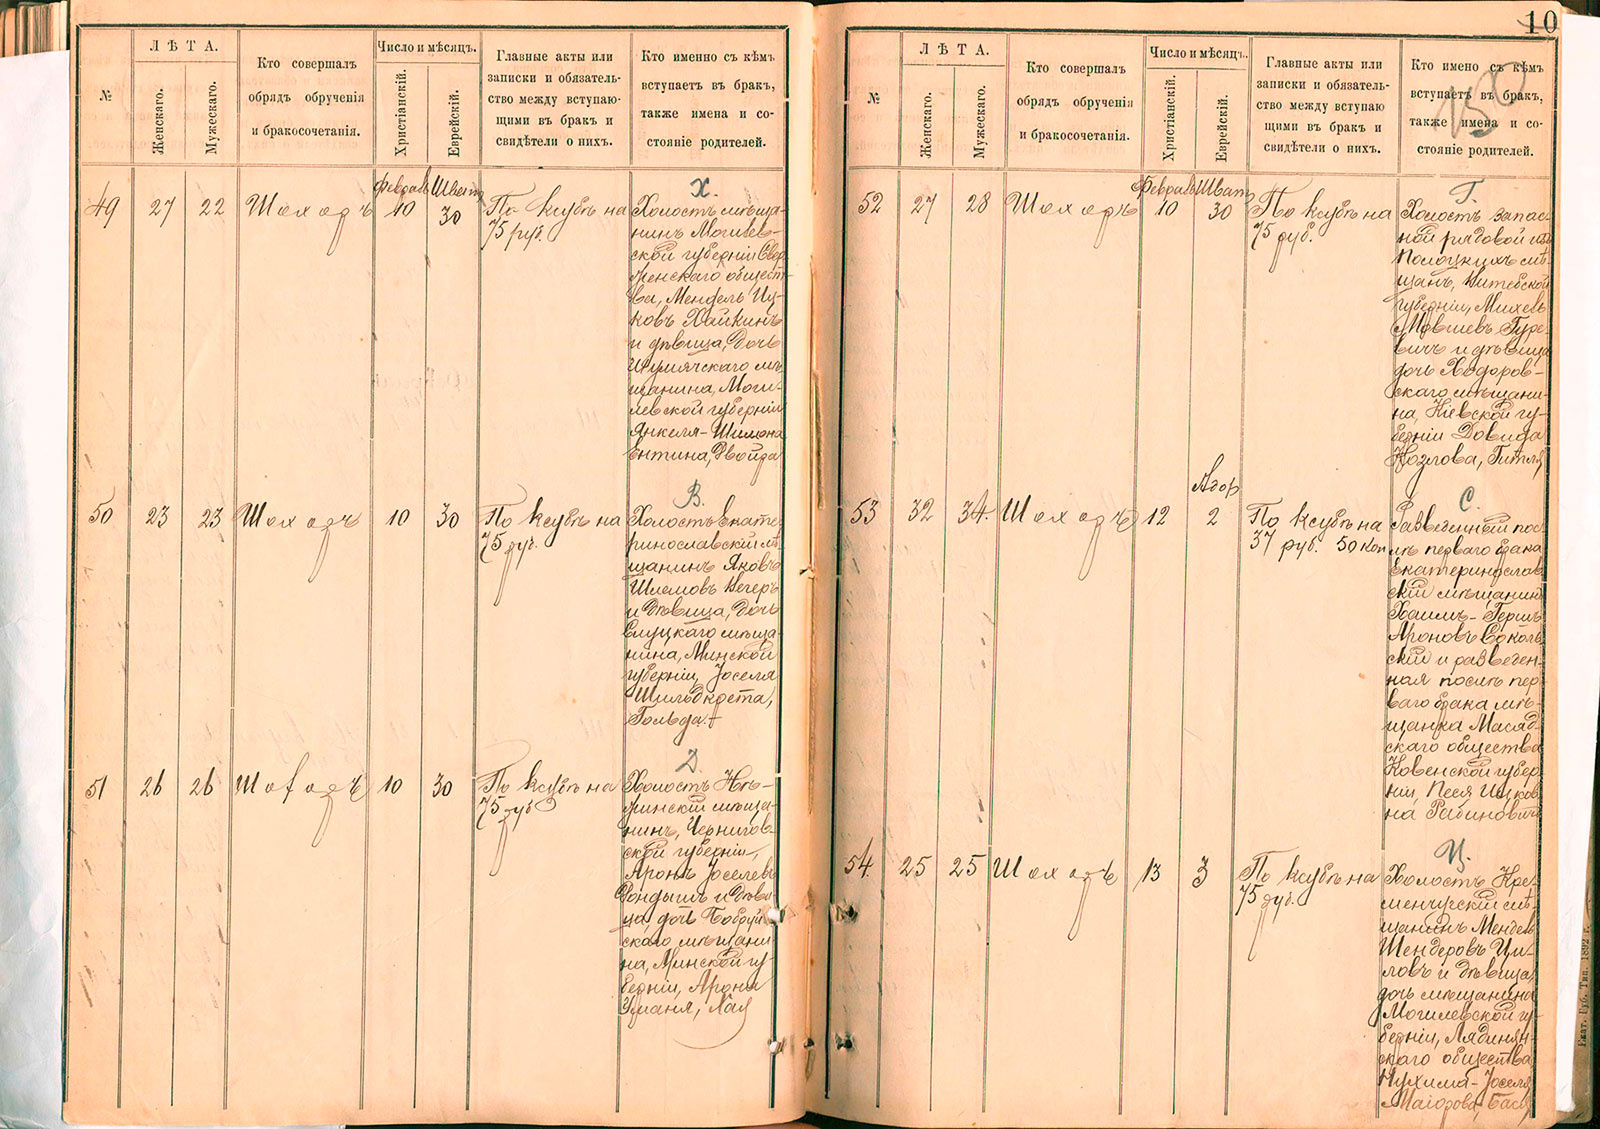 №
ЛѢТА.
Женскаго.
Мужескаго.
Кто совершалъ
обрядъ обрученія
и бракосочетанія.
Число и мѣсяцъ.
Христіанскій.
Еврейскій.
Главные акты или
записки и обязатель-
ство между вступаю-
щими въ бракъ и
свидѣтели о нихъ.
Кто именно съ кѣмъ
вступаетъ въ бракъ,
также имена и со-
стояніе родителей.
49
27
22
Шоходъ
Февраль
10
Шватъ
30
По ксубѣ на
75 руб.
Х.
Холостъ мѣща-
нинъ Могилев-
ской губерніи Свер
женскаго общест-
ва, Мендель Иц-
ковъ Хайкинъ
и дѣвица, дочь
Шумячскаго мѣ
щанина, Моги-
левской губерніи
Янкеля-Шимона
Ентина, Двойра
50
23
23
Шоходъ
10
30
По ксубѣ на
75 руб.
В.
Холостъ Екате-
ринославскій мѣ
щанинъ Яковъ
Шлемовъ Вегеръ
и дѣвица, дочь
Слуцкаго мѣща-
нина, Минской
губерніи, Іоселя
Шильдкрета,
Гольда.
51
26
26
Шоходъ
10
30
По ксубѣ на
75 руб
Д.
Холостъ Нѣ-
жинскій мѣща-
нинъ, Чернигов-
ской губерніи,
Аронъ Іоселевъ
Дондышъ и дѣви
ца, дочь Бобруй-
скаго мѣщани-
на, Минской гу-
берніи, Арона
Уманя, Хая
10
150
№
ЛѢТА.
Женскаго.
Мужескаго.
Кто совершалъ
обрядъ обрученія
и бракосочетанія.
Число и мѣсяцъ.
Христіанскій.
Еврейскій.
Главные акты или
записки и обязатель-
ство между вступаю
щими въ бракъ и
свидѣтели о нихъ.
Кто имено съ кѣмъ
вступаетъ въ бракъ,
также имена и со-
стояніе родителей.
52
27
28
Шоходъ
Февраль
10
Шватъ
30
По ксубѣ на
75 руб.
Г.
Холостъ запас-
ной рядовой изъ
Полоцкихъ мѣ-
щанъ, Витебской
губерніи, Михель
Мовшевъ Гуре-
вичъ и дѣвица
дочь Ходоров-
скаго мѣщани-
на, Кіевской гу-
берніи Довида
Козлова, Гитля
53
32
34.
Шоходъ
12
Адор
2
По ксубѣ на
37 руб. 50 коп
С.
Разведенный пос-
лѣ перваго брака
Екатеринослав
скій мѣщанинъ
Хаимъ-Гершъ
Ароновъ Соколь
скій и разведен-
ная послѣ пер-
ваго брака мѣ-
щанка Масяд-
скаго общества
Ковенской губер-
ніи, Песя Ицков
на Рабиновичъ
54
25
25
Шоходъ
13
3
По ксубѣ на
75 руб.
Ц.
Холостъ Кре-
менчугскій мѣ-
щанинъ Мендель
Шендеровъ Ци-
ловъ и дѣвица,
дочь мѣщанина
Могилевской гу-
берніи, Лядинян-
скаго общества
Нухима-Іоселя
Маіорова, Бася
Екат. Губ. Тип. 1892 г.